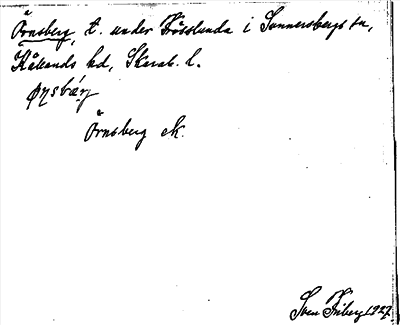 Örnsberg, t. under Trässlunda i Sunnersbergs sn,
Kållands hd, Skarab. l.
Örnsberg ek.
Sven Friberg 1927.